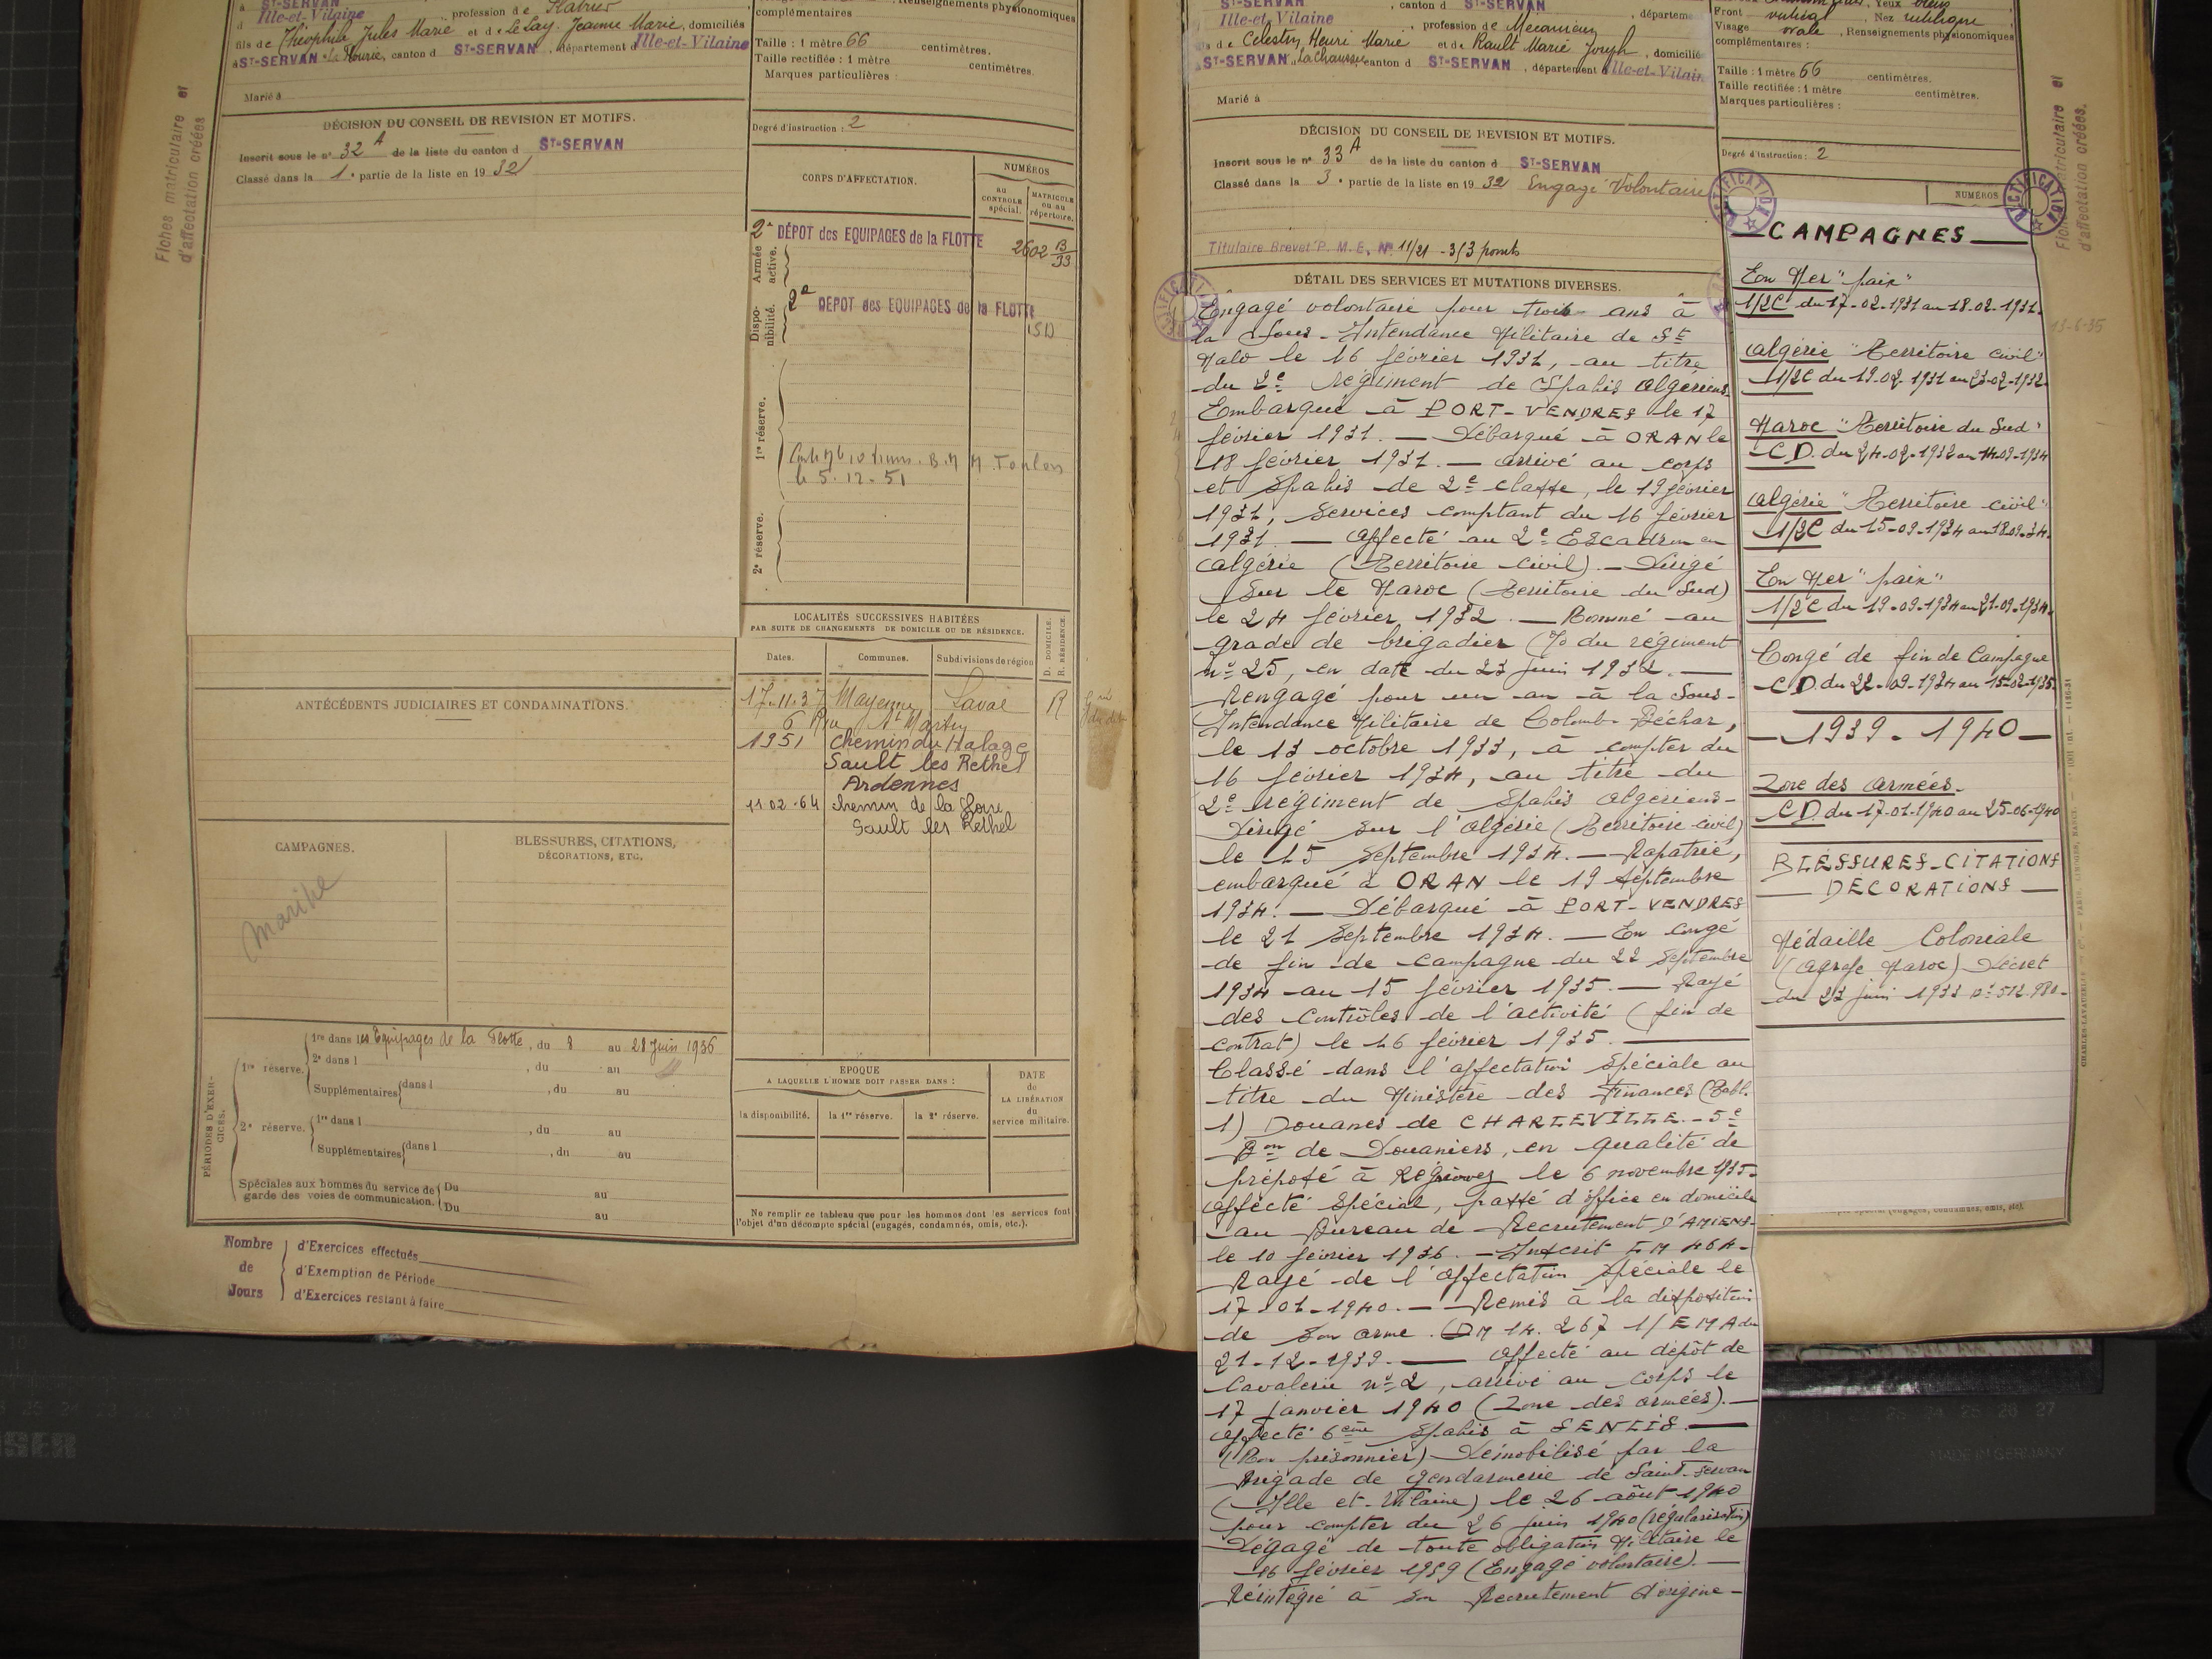 à ST-SERVAN, canton d ST-SERVAN
d Ille-et-Vilaine, profession de
fils de Théophile Jules Marie et de Le Lay, Jeanne Marie, domiciliés
à ST-SERVAN, canton d ST-SERVAN, département d Ille-et-Vilaine
Marié à
DÉCISION DU CONSEIL DE REVISION ET MOTIFS.
Inscrit sous le n° 32 A de la liste du canton d ST-SERVAN
Classé dans la 1e partie de la liste en 1932
Fiches matriculaire et
d'affectation créées
Renseignements physionomiques
complémentaires
Taille : 1 mètre 66 centimètres.
Taille rectifiée : 1 mètre centimètres.
Marques particulières :
Degré d'instruction : 2
CORPS D'AFFECTATION.
NUMÉROS
AU CONTROLE spécial.
MATRICULE ou au répertoire.
Armée active.
2e DÉPOT des EQUIPAGES de la FLOTTE
2602 13/33
Dispo-nibilité.
2e DEPOT des EQUIPAGES de la FLOTTE
1re réserve.
B.M M. Toulon
le 5.12.51
2e réserve.
LOCALITÉS SUCCESSIVES HABITÉES
PAR SUITE DE CHANGEMENTS DE DOMICILE OU DE RÉSIDENCE.
D. DOMICILE.
R. RÉSIDENCE.
Dates. Communes. Subdivisions de région
17.11.37 Mayenne Laval R
6 Rue St Martin
1951 chemin du Halage
Sault les Rethel
Ardennes
11 02.64 chemin de la Loire
Sault les Rethel
ANTÉCÉDENTS JUDICIAIRES ET CONDAMNATIONS.
CAMPAGNES.
BLESSURES, CITATIONS,
DÉCORATIONS, ETC.
Marine
PÉRIODES D'EXERCICES.
1re réserve. 1re dans les Equipages de la Flotte, du 8 au 28 Juin 1936
2e dans l , du au
Supplémentaires dans l , du au
2e réserve. 1re dans l , du au
Supplémentaires dans l , du au
Spéciales aux hommes du service de garde des voies de communication. Du au
Du au
ÉPOQUE
A LAQUELLE L'HOMME DOIT PASSER DANS :
la disponibilité. la 1re réserve. la 2e réserve.
DATE
de
LA LIBÉRATION
du
service militaire.
Ne remplir ce tableau que pour les hommes dont les services font
l'objet d'un décompte spécial (engagés, condamnés, omis, etc.).
Nombre de Jours
d'Exercices effectués
d'Exemption de Période
d'Exercices restant à faire
ST-SERVAN, canton d ST-SERVAN, département
Ille-et-Vilaine, profession de Mécanicien
fils de Célestin Henri Marie et de Rault Marie Joseph, domiciliés
à ST-SERVAN La Chaussée, canton d ST-SERVAN, département d Ille-et-Vilaine
Marié à
DÉCISION DU CONSEIL DE REVISION ET MOTIFS.
Inscrit sous le n° 33 A de la liste du canton d ST-SERVAN
Classé dans la 3e partie de la liste en 1932 Engagé Volontaire
Titulaire Brevet P. M. E. N° 11/21 - 313 points
Front vertical, Nez rectiligne
Visage ovale, Renseignements physionomiques
complémentaires :
Taille : 1 mètre 66 centimètres.
Taille rectifiée : 1 mètre centimètres.
Marques particulières :
Degré d'instruction : 2
NUMÉROS
RECTIFICATION
DÉTAIL DES SERVICES ET MUTATIONS DIVERSES.
Engagé volontaire pour trois ans à
la Sous-Intendance Militaire de St
Malo le 16 février 1931, au titre
du 2e régiment de Spahis Algériens.
Embarqué à PORT-VENDRES le 17
février 1931. — Débarqué à ORAN le
18 février 1931. — arrivé au corps
et Spahis de 2e classe, le 19 février
1931, Services comptant du 16 février
1931. — Affecté au 2e Escadron en
Algérie (Territoire civil). — Dirigé
sur le Maroc (Territoire du Sud)
le 24 février 1932. — Nommé au
grade de brigadier (O du régiment
n° 25, en date du 23 juin 1932. —
Rengagé pour un an à la Sous-
Intendance Militaire de Colomb-Béchar,
le 13 octobre 1933, à compter du
16 février 1934, au titre du
2e régiment de Spahis Algériens -
Dirigé sur l'Algérie (Territoire civil)
le 15 Septembre 1934. — Rapatrié,
embarqué à ORAN le 19 Septembre
1934. — Débarqué à PORT-VENDRES
le 21 Septembre 1934. — En congé
de fin de campagne du 22 Septembre
1934 au 15 février 1935. — Rayé
des contrôles de l'activité (fin de
contrat) le 16 février 1935. —
Classé dans l'affectation spéciale au
titre du Ministère des Finances (Tabl.
1) Douanes de CHARLEVILLE. - 5e
Bon de Douaniers, en qualité de
préposé à Regniowez le 6 novembre 1935.
Affecté spécial, passé d'office en domicile
au Bureau de Recrutement D'AMIENS-
le 10 février 1936. — Inscrit
Rayé de l'affectation spéciale le
17-01-1940. — Remis à la disposition
de son arme. (DM 14.267 1/EMA du
21-12-1939. — Affecté au dépôt de
Cavalerie n° 2, arrivé au corps le
17 janvier 1940 (Zone des armées). —
Affecté 6ème Spahis à SENLIS. —
(Non prisonnier) Démobilisé par la
Brigade de gendarmerie de Saint-Servan
(Ille et Vilaine) le 26 août 1940
pour compter du 26 juin 1940 (régularisation)
Dégagé de toute obligation Militaire le
16 février 1959 (Engagé volontaire). —
Réintégré à son Recrutement d'origine -
CAMPAGNES
En Mer "paix"
1/2C du 17-02-1931 au 18-02-1931.
Algérie "Territoire civil"
1/2C du 19-02-1931 au 23-02-1932
Maroc "Territoire du Sud"
C.D. du 24-02-1932 au 14-09-1934
Algérie "Territoire civil"
1/2C du 15-09-1934 au 18.09.34.
En Mer "paix"
1/2C du 19-09-1934 au 21-09-1934.
Congé de fin de Campagne
C.D. du 22-09-1934 au 15-02-1935.
1939 - 1940
Zone des armées.
C.D. du 17-01-1940 au 25-06-1940
BLESSURES-CITATIONS
DÉCORATIONS
Médaille Coloniale
(agrafe Maroc) Décret
du 23 juin 1933 n° 512.980.
13-6-35
MADE IN GERMANY